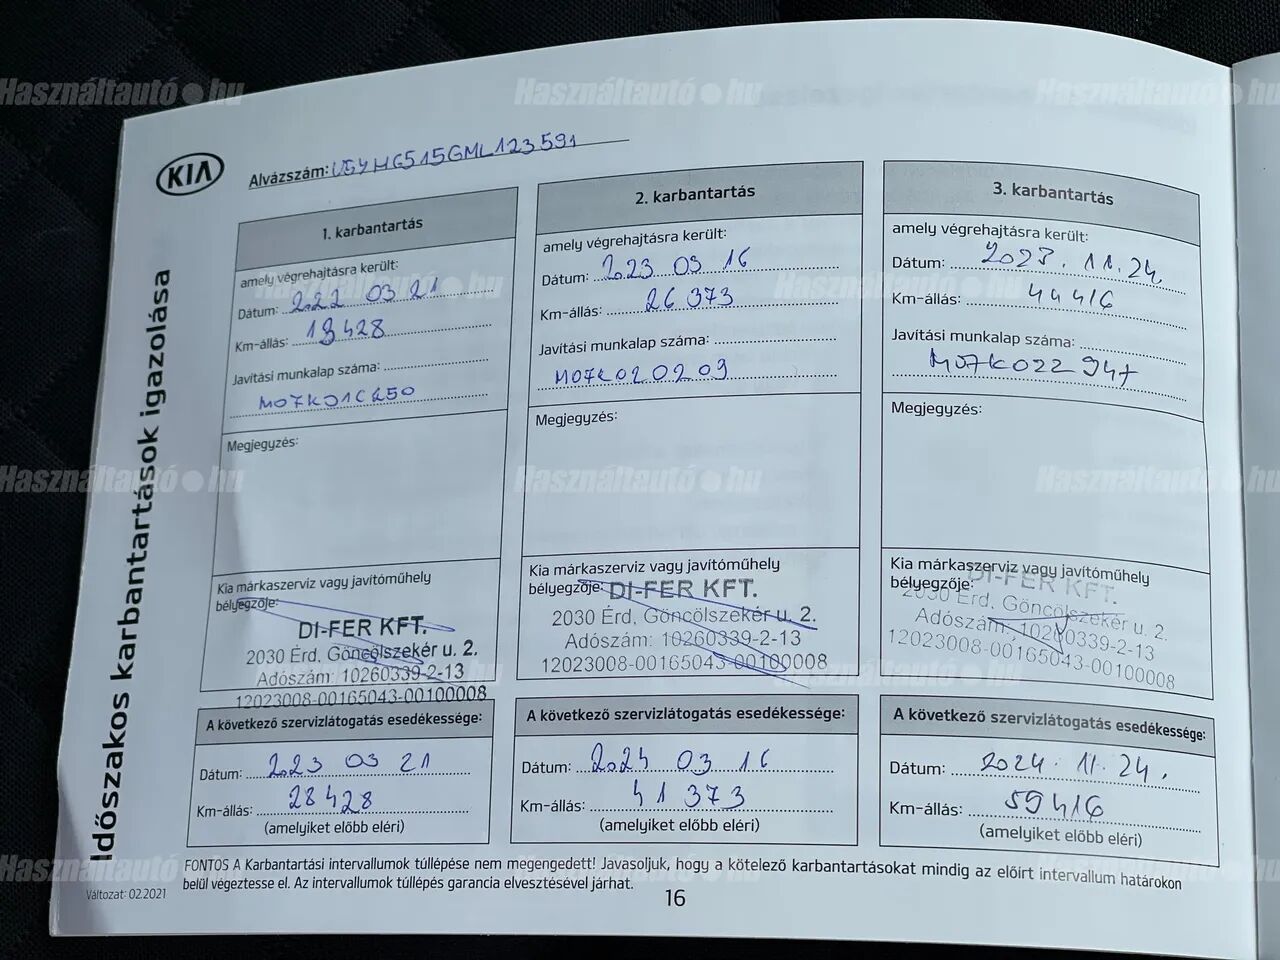 Használtautó.hu Használtautó.hu Használtautó.hu
KIA
Alvázszám: U5YHG515GML123591
Időszakos karbantartások igazolása
1. karbantartás
amely végrehajtásra került:
Dátum: 2022 03 21
Km-állás: 13428
Javítási munkalap száma:
Megjegyzés:
Kia márkaszerviz vagy javítóműhely
bélyegzője:
DI-FER KFT.
2030 Érd, Göncölszekér u. 2.
Adószám: 10260339-2-13
12023008-00165043-00100008
A következő szervizlátogatás esedékessége:
Dátum: 2023 03 21
Km-állás: 28428
(amelyiket előbb eléri)
2. karbantartás
amely végrehajtásra került:
Dátum: 2023 03 16
Km-állás: 26373
Javítási munkalap száma:
M07K020209
Megjegyzés:
Kia márkaszerviz vagy javítóműhely
bélyegzője:
DI-FER KFT.
2030 Érd, Göncölszekér u. 2.
Adószám: 10260339-2-13
12023008-00165043-00100008
A következő szervizlátogatás esedékessége:
Dátum: 2024 03 16
Km-állás: 41373
(amelyiket előbb eléri)
3. karbantartás
amely végrehajtásra került:
Dátum: 2023. 11. 24.
Km-állás: 44416
Javítási munkalap száma:
M07K022947
Megjegyzés:
Kia márkaszerviz vagy javítóműhely
bélyegzője:
DI-FER KFT.
2030 Érd, Göncölszekér u. 2.
Adószám: 10260339-2-13
12023008-00165043-00100008
A következő szervizlátogatás esedékessége:
Dátum: 2024. 11. 24.
Km-állás: 59416
(amelyiket előbb eléri)
Használtautó.hu Használtautó.hu Használtautó.hu
Használtautó.hu Használtautó.hu Használtautó.hu
FONTOS A Karbantartási intervallumok túllépése nem megengedett! Javasoljuk, hogy a kötelező karbantartásokat mindig az előírt intervallum határokon
belül végeztesse el. Az intervallumok túllépés garancia elvesztésével járhat.
Változat: 02.2021
16